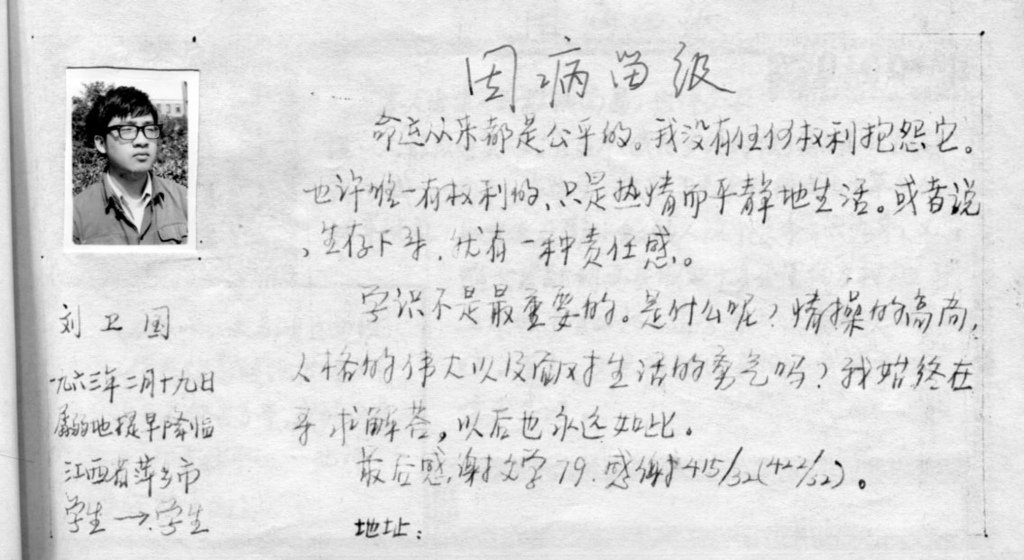 因病留级
命运从来都是公平的。我没有任何权利抱怨它。
也许唯一有权利的、只是热情而平静地生活。或者说
，生存下来，就有一种责任感。
学识不是最重要的。是什么呢？情操的高尚，
人格的伟大以及面对生活的勇气吗？我始终在
寻求解答，以后也永远如此。
最后感谢文学79.感谢415/32(422/32)。
地址：
刘卫国
一九六三年二月十九日
孱弱地提早降临
江西省萍乡市
学生→学生